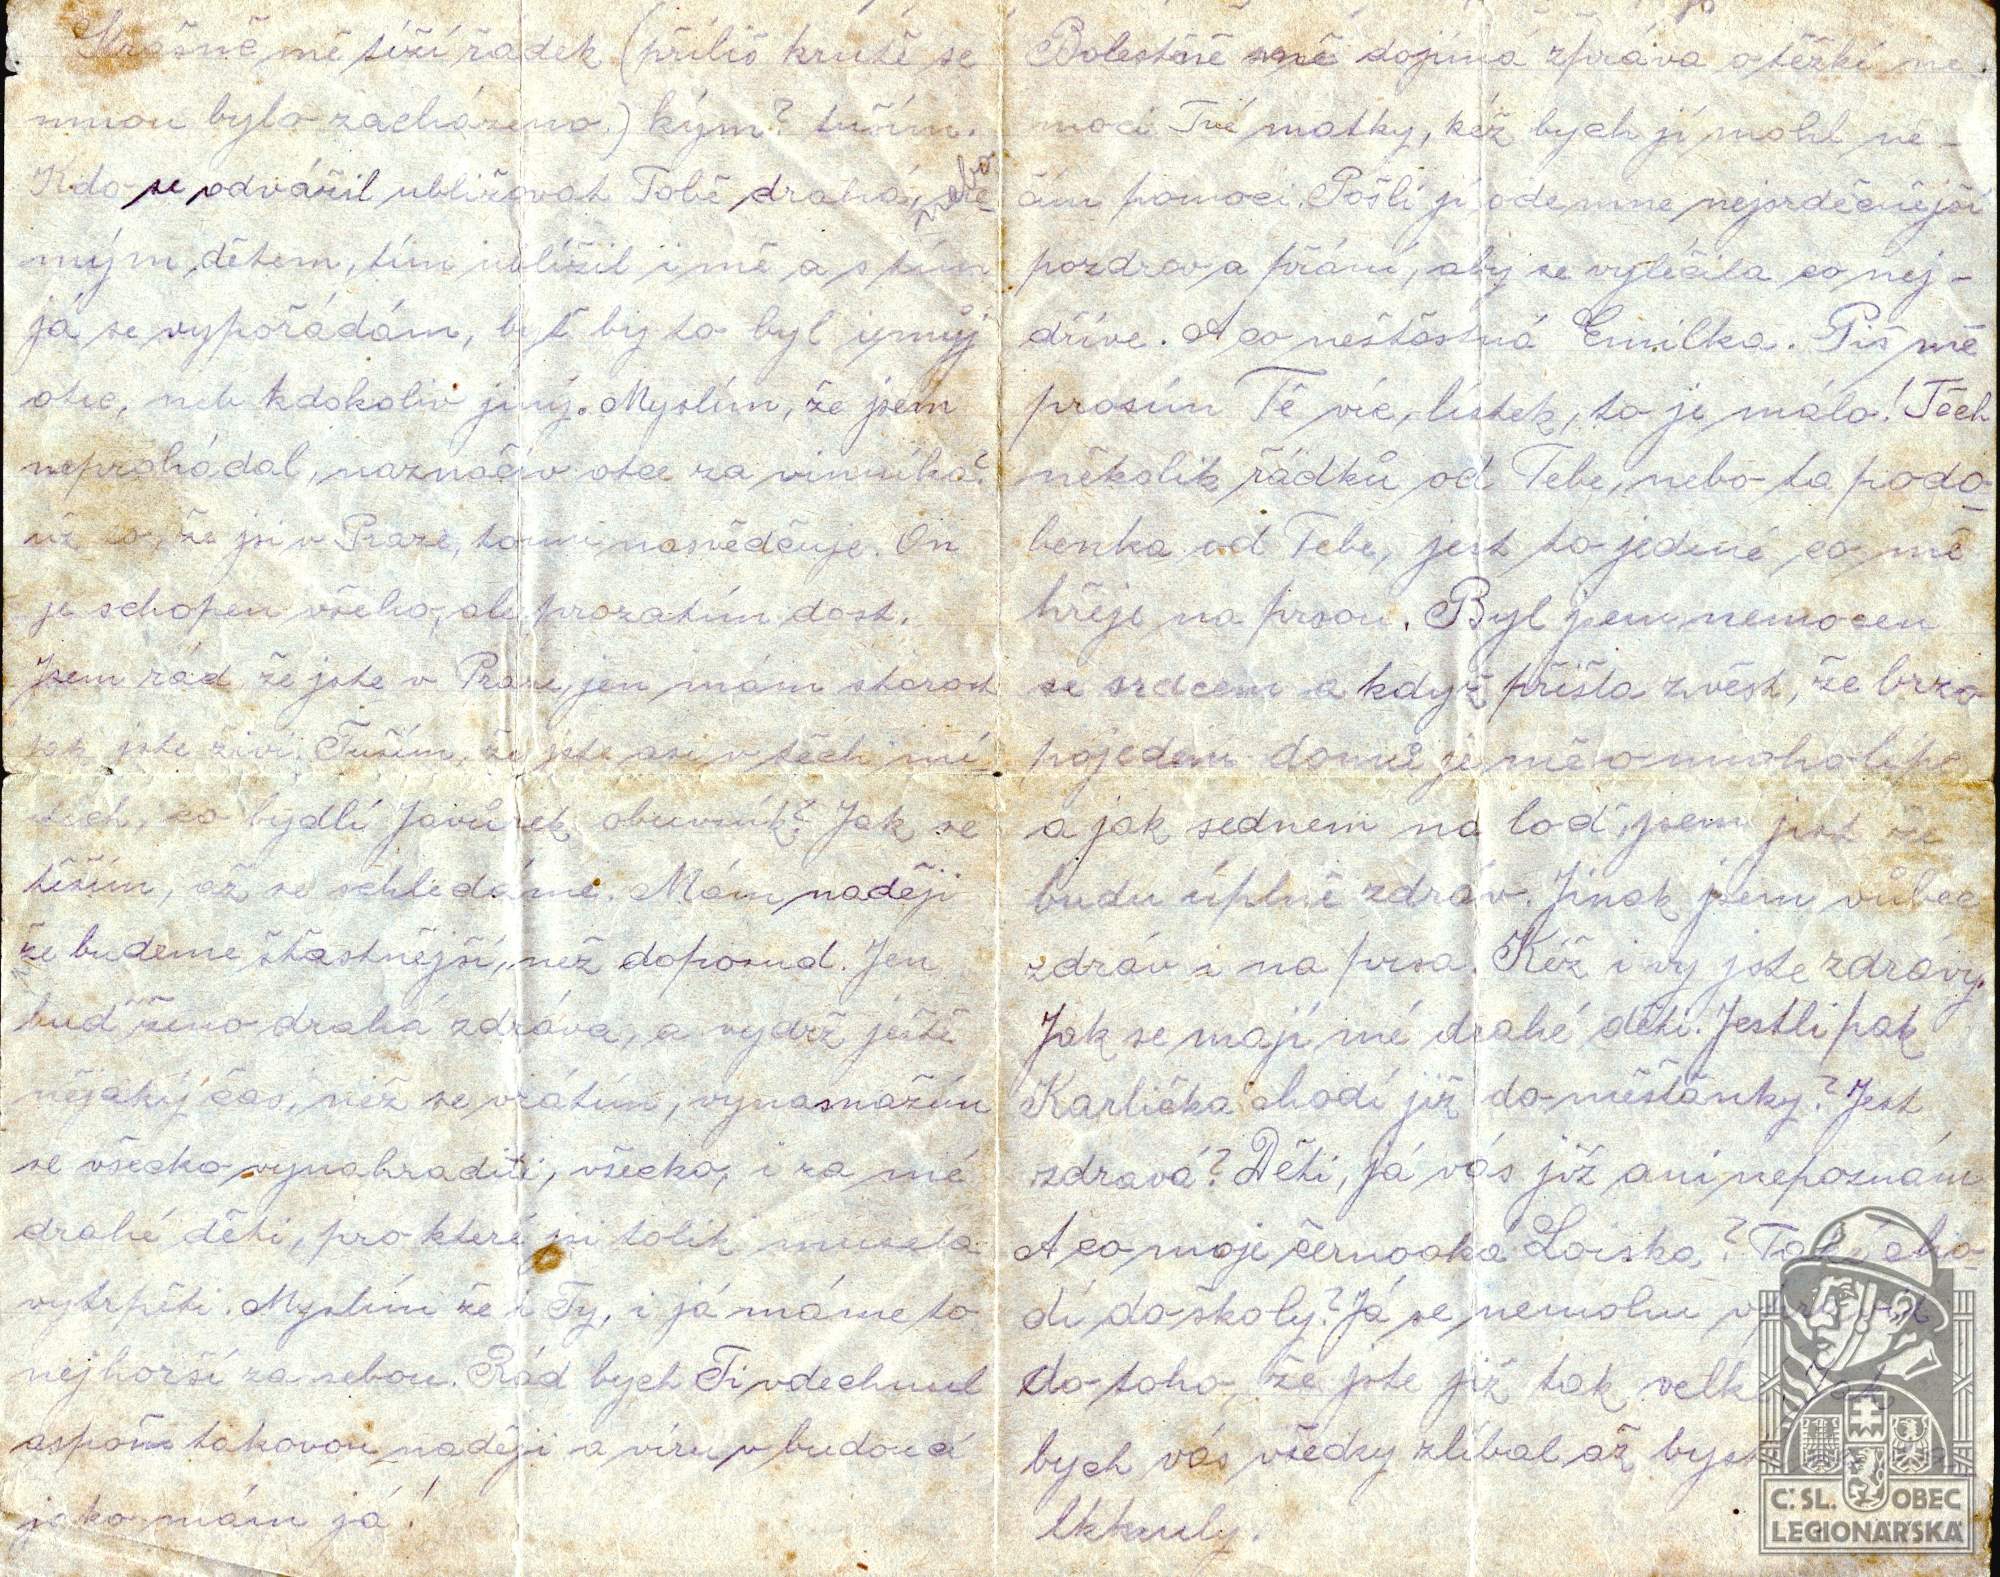 Strašně mě tíží řádek (příliš krutě se
mnou bylo zacházeno.) kým? tuším.
Kdo se odvážil ubližovat Tobě drahá, nebo
mým dětem, tím ublížil i mě a s tím
já se vypořádám, byť by to byl i můj
otec, neb kdokoliv jiný. Myslím, že jsem
neprohádal, naznačiv otce za viníka?
už co, že jsi v Praze, tomu nasvědčuje. On
je schopen všeho, ale prozatím dost.
Jsem rád že jste v Praze, jen mám starost
jak jste živi. Tuším, že jste asi v těch mí
tech, co bydlí Javůrek obuvník? Jak se
těším, až se schledáme. Mám naději
že budeme šťastnější, než doposud. Jen
buď ženo drahá zdráva, a vydrž ještě
nějáký čas, než se vrátím, vynasnažím
se všecko vynahraditi, všecko, i za mé
drahé děti, pro které jsi tolik musela
vytrpěti. Myslím že i Ty, i já máme to
nejhorší za sebou. Rád bych Ti vdechnul
aspoň takovou naději a víru v budoucí
jako mám já!
Bolestně mě dojímá zpráva o těžké ne-
moci Tvé matky, kéž bych jí mohl ně-
čím pomoci. Pošli jí odemne nejsrdečnější
pozdrav a přání, aby se vyléčila co nej-
dříve. A co nešťastná Emilka. Piš mě
prosím Tě víc, lístek, to je málo! Těch
několik řádků od Tebe, nebo ta podo-
benka od Tebe, jest to jediné co mě
hřeje na prsou. Byl jsem nemocen
se srdcem a když přišla zvěst, že brzo
pojedem domů je mě o mnoho lépe
a jak sednem na loď, jsem jist že
budu úplně zdráv. Jinak jsem vůbec
zdráv i na prsa. Kéž i vy jste zdrávy.
Jak se mají mé drahé děti. Jestli pak
Karlička chodí již do měšťánky? Jest
zdravá? Děti, já vás již ani nepoznám
A co moje černooká Loiska? Také cho-
dí do školy? Já se nemohu vpravit
do toho, že jste již tak velké, tak
bych vás všecky zlíbal až byste
lkknuly.
Č. SL. OBEC
LEGIONÁŘSKÁ